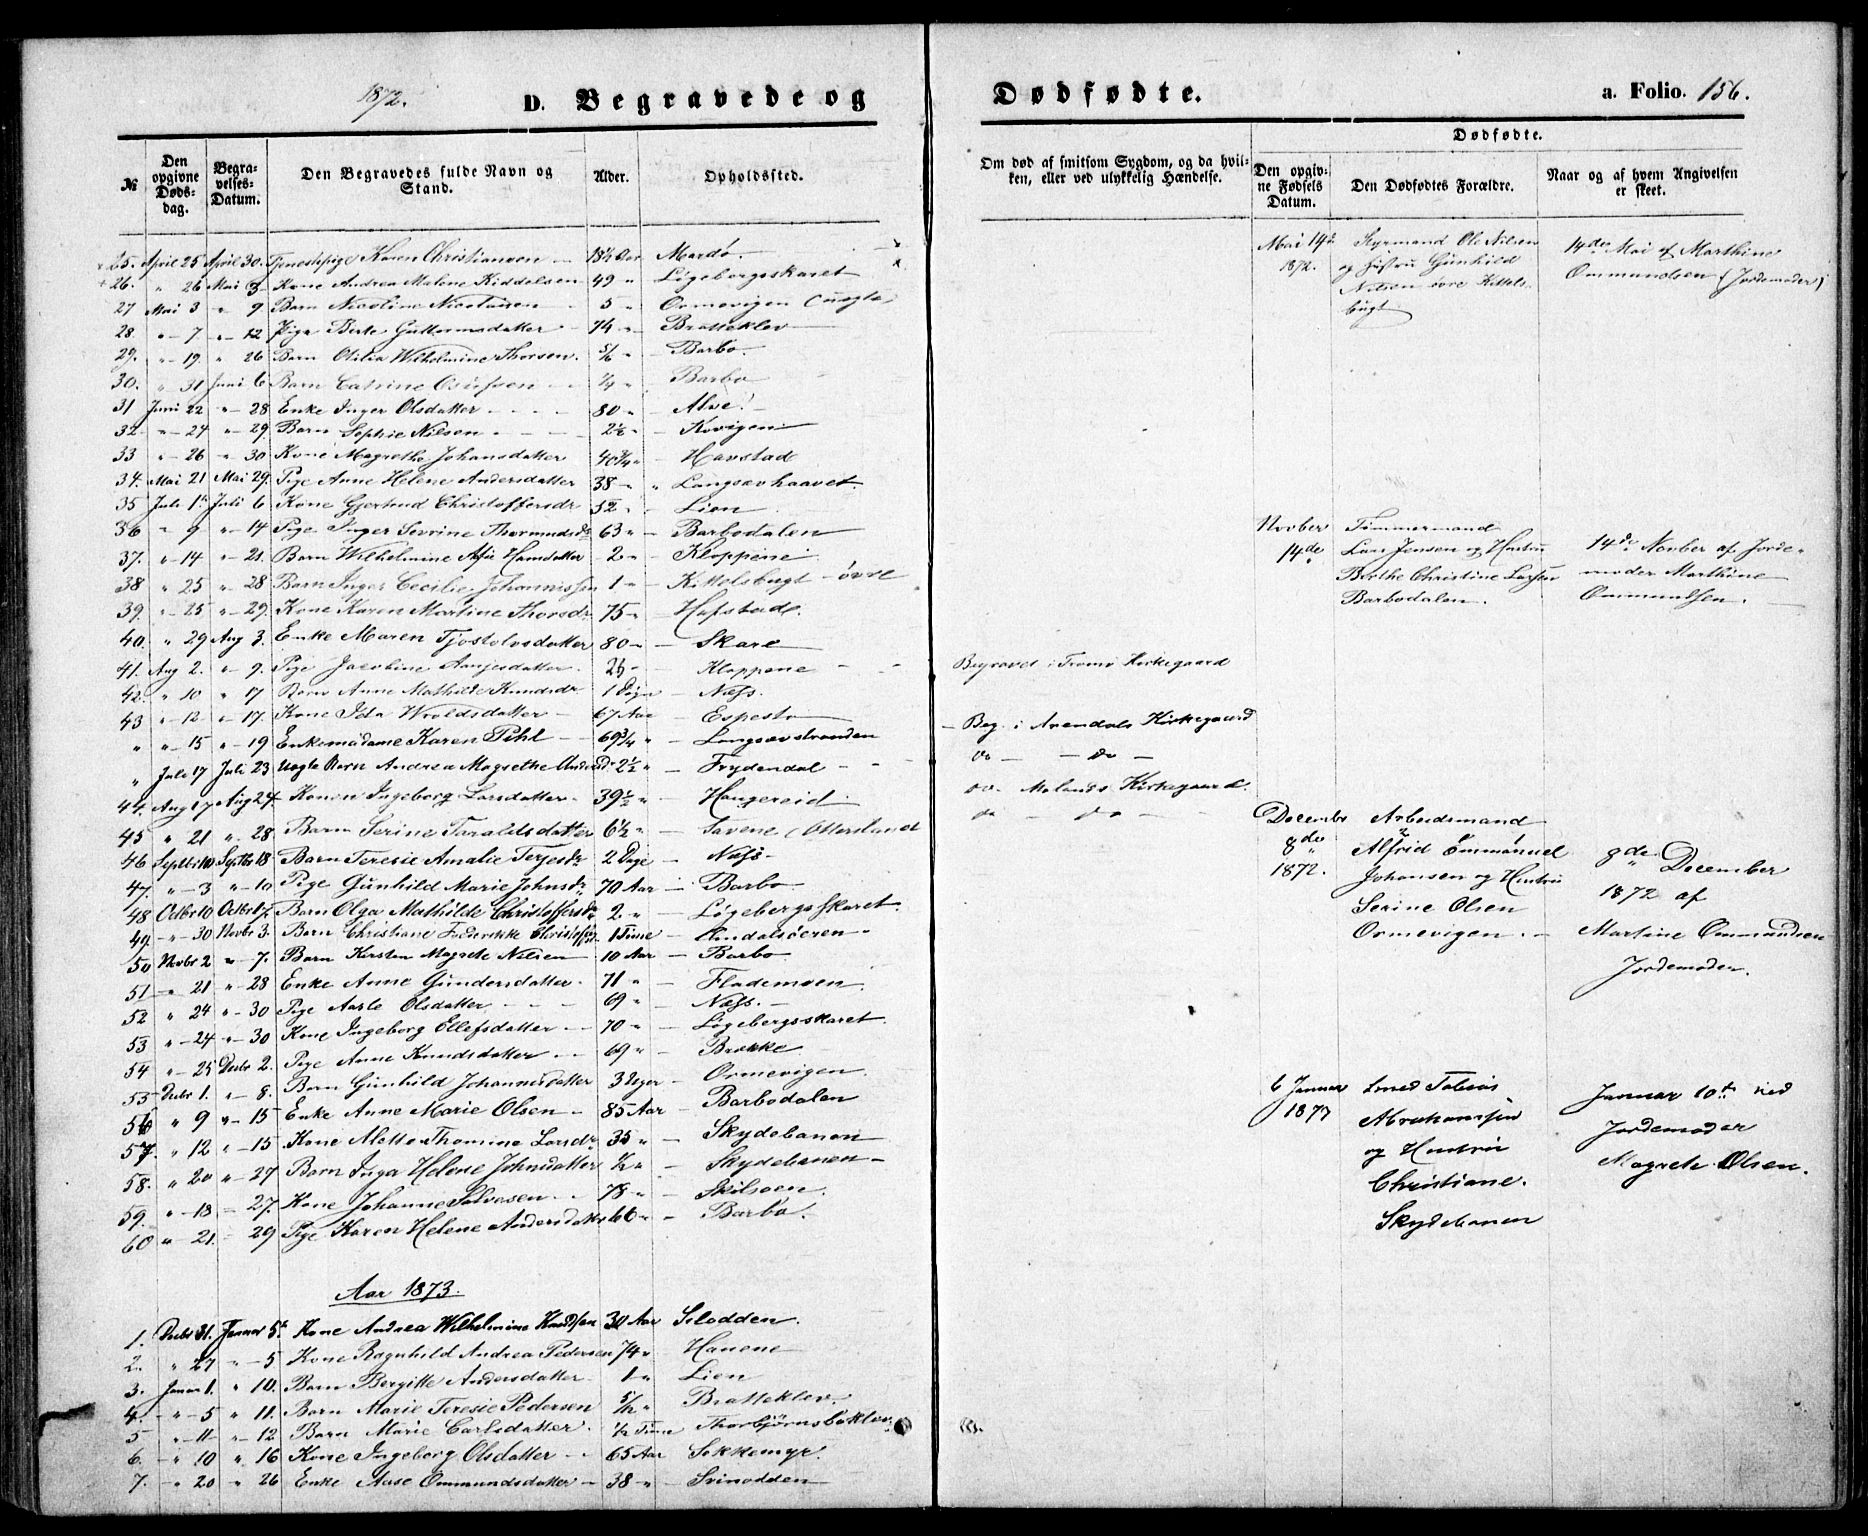 1872.
D. Begravede og
Dødfødte.
a. Folio. 156.
№
Den opgivne Døds-dag.
Begra-velses-Datum.
Den Begravedes fulde Navn og Stand.
Alder.
Opholdssted.
Om død af smitsom Sygdom, og da hvil-ken, eller ved ulykkelig Hændelse.
Dødfødte.
Den opgiv-ne Fødsels Datum.
Den Dødfødtes Forældre.
Naar og af hvem Angivelsen er skeet.
25. April 25 April 30. Tjenestepige Karen Christiansen – 18½ Aar Mardø.
26. " 26 Mai 3 Kone Andrea Malene Kiddelsen 49 " – Løgebergsskaret
27 Mai 3 " 9 Barn Nicoline Nicolaisen – 5 " Ormevigen (uægte)
28. " – 7 " – 12 Pige Berte Guttormsdatter – 74 " – Bratteklev
29. " – 19. " 26 Barn Otilia Wilhelmine Thorsen. 5/6 " – Barbo.
30. " 31 Juni 6 Barn Catrine – ¼ " Barbo
31 Juni 22 " – 28 Enke Inger Olsdatter – 80 " – Alve
32. " – 24 " – 29. Barn Sophie Nilsen – 2½ " – Kovigen
33 " – 26 " – 30 Kone Magrethe Johansdatter 40¾ " – Havstad
34. Mai 21 Mai 29. Pige Anne Helene Andersdatter 38 – " Langsævhaavet.
35 Juli 1. Juli 6 Kone Gjertrud Christoffersdr 52 " Lien
36 " 9 " – 14 Pige Inger Sevrine Thormundsdr 63 " – Barbodalen
37. " – 14 " – 21. Barn Wilhelmine Hansdatter – 2 – " – Kloppene
38 " 25 " – 28 Barn Inger Cecilie Johannissen 1 – " – Kittelsbugt – övre
39. " – 25 " – 29. Kone Karen Martine Thorsdr 75 – " – Hafstad.
40. " 29 Aug 3. Enke Maren Tjostolvsdatter 80 – " – Skare
41. Aug 2. " – 9. Pige Jacobine – Kloppene – –
42. " 10 " 17 Barn Anne Mathilde Knudsdr 1 Døgn – Næfs.
43 " – 12 " – 17. Kone Ida Wroldsdatter – 67 Aar – Espesto
" " – 15 " – 19 Enkemadame Karen Pihl – 69¾ " – Langsævstranden
" Juli 17 Juli 23 Uægte Barn Andrea Magrethe Andersdr 2½ " – Frydendal – –
44. Aug 17 Aug 24 Konen Ingeborg Larsdatter – 39½ " – Haugereid
45 " 21 " 28 Barn Serine Taraldsdatter 6½ " –
46 Septbr 10 Septbr 18 Barn Teresie Amalie Terjesdr 2 Dage – Næfs –
47. " – 3 " – 10 Pige Gunhild Marie Johnsdr 70 Aar – Barbo
48 Octbr 10 Octbr 17. Barn Olga Mathilde Christoffersdr 2 – " – Løgebergsskaret.
49. " – 30 Novbr 3. Barn Christiane 1 Time –
50 Novbr 2 " – 7. Barn Kirsten Magrete Nilsen – 10 Aar – Barbo
51 " 21 " – 28 Enke Anne Gundersdatter – 71 " – Flademoen
52 " 24 " – 30 Pige Aasle Olsdatter – – 69 " – Næfs. –
53 " – 24 " – 30 Kone Ingeborg Ellefsdatter – 70 " – Løgebergsskaret
54 " – 25 Decbr 2. Pige Anne Knudsdatter – – 69 " – Brække
55 Decbr 1. " – 8. Barn Gunhild Johannesdatter 3 Uger – Ormevigen
56 " 9 " – 15 Enke Anne Marie Olsen – 85 Aar – Barbodalen
57. " 12 " – 15 Kone Alette Thomine Larsdr 35 " – Skydebanen
58. " 20 " – 27 Barn Inga Helene Johnsdatter ½ " – Skydebanen –
59. " – 18 – 27. Kone Johanne Salvesen – 78 – " – Skilsøen.
60 " – 21. – 29 Pige Karen Helene Andersdatter 66 – " – Barbo.
Aar 1873.
1. Decbr 31. Januar 5t Kone Andrea Wilhelmine Knudsen 30 Aar Slodden.
2. " 27 " – 5 Kone Ragnhild Andrea Pedersen 74 " Hanene
3. Januar 1. " 10. Barn Bergitte Andersdatter 1 – " Lien
4. – " – 5 " 11. Barn Marie Teresie Pedersen 5/12 " Bratteklev.
5 " – 11 " – 12. Barn Marie Carlsdatter. ½ Time Thorbjørnsboklev.
6. – " 10 " 16 Kone Ingeborg Olsdatter – 65 Aar Sokkemyr.
7. – " 20 " 26 Enke Aase Ommundsdatter – 38 – " Svinodden
Begravet i Tromø Kirkegaard
– Beg. i Arendals Kirkegaard
do – – do –
do – Molands Kirkegaard.
do – – do –
Mai 14de
1872.
Styrmand Ole Nilsen
og Hustru Gunhild
Nilsen övre Kittels-
bugt
14de Mai af Marthine
Ommundsen (Jordemoder)
Novber
14de
Tømmermand
Lars Jensen og Hustru
Berthe Christine Larsen
Barbodalen.
14de Novber af Jorde-
moder Marthine
Ommundsen.
Decembr
8de
1872.
Arbeidsmand
Alfrid Emmanuel
Johansen og Hustru
Serine Olsen
Ormevigen. –
8de December
1872 af
Martine Ommundsen
Jordemoder.
6 Januar
1873
Smed Tobias
Abrahamsen
og Hustru
Christiane.
Skydebanen
Januar 10de ved
Jordemoder
Magrete Olsen.